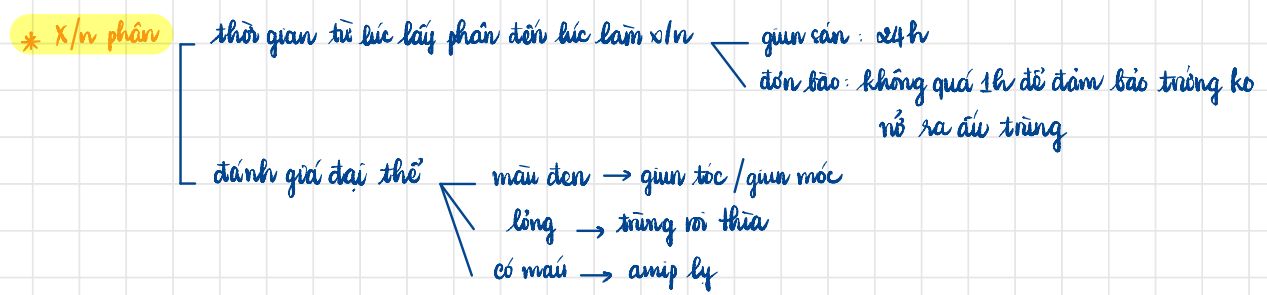 * X/n phân
thời gian từ lúc lấy phân đến lúc làm x/n
giun sán : 24h
đơn bào : không quá 1h để đảm bảo trứng ko
nở ra ấu trùng
đánh giá đại thể
màu đen → giun tóc / giun móc
lỏng → trùng roi thìa
có máu → amip lỵ